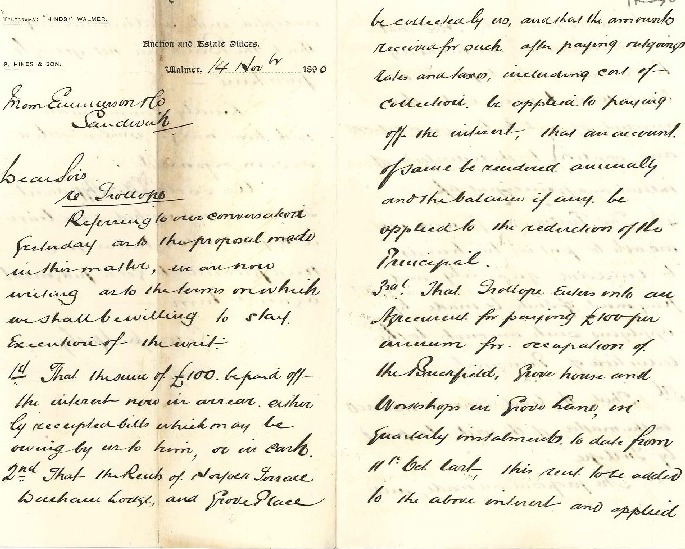 TELEGRAMS: "HINDS" WALMER.
Auction and Estate Offices.
P. HINDS & SON.
Walmer, 14 Novbr 1890
Mess Emmerson & Co
Sandwich
Dear Sirs
re Trollope
Referring to our conversation
yesterday as to the proposal made
in this matter, we are now
writing as to the terms on which
we shall be willing to stay
Execution of the writ
1st That the sum of £100. be paid off
the interest now in arrear. either
by receipted bills which may be
owing by us to him, or in cash.
2nd That the Rents of Norfolk Terrace
Lodge, and Grove Place
be collected by us, and that the amounts
received for such after paying outgoings
rates and taxes, including cost of
collection. be applied to paying
off the interest; that an account
of same be rendered annually
and the balance if any. be
applied to the reduction of the
Principal.
3rd That Trollope Enters into an
Agreement for paying £100 per
annum for occupation of
the Brickfield, Grove house and
Workshops in Grove Lane, in
quarterly instalments to date from
11th Oct last, this rent to be added
to the above interest and applied